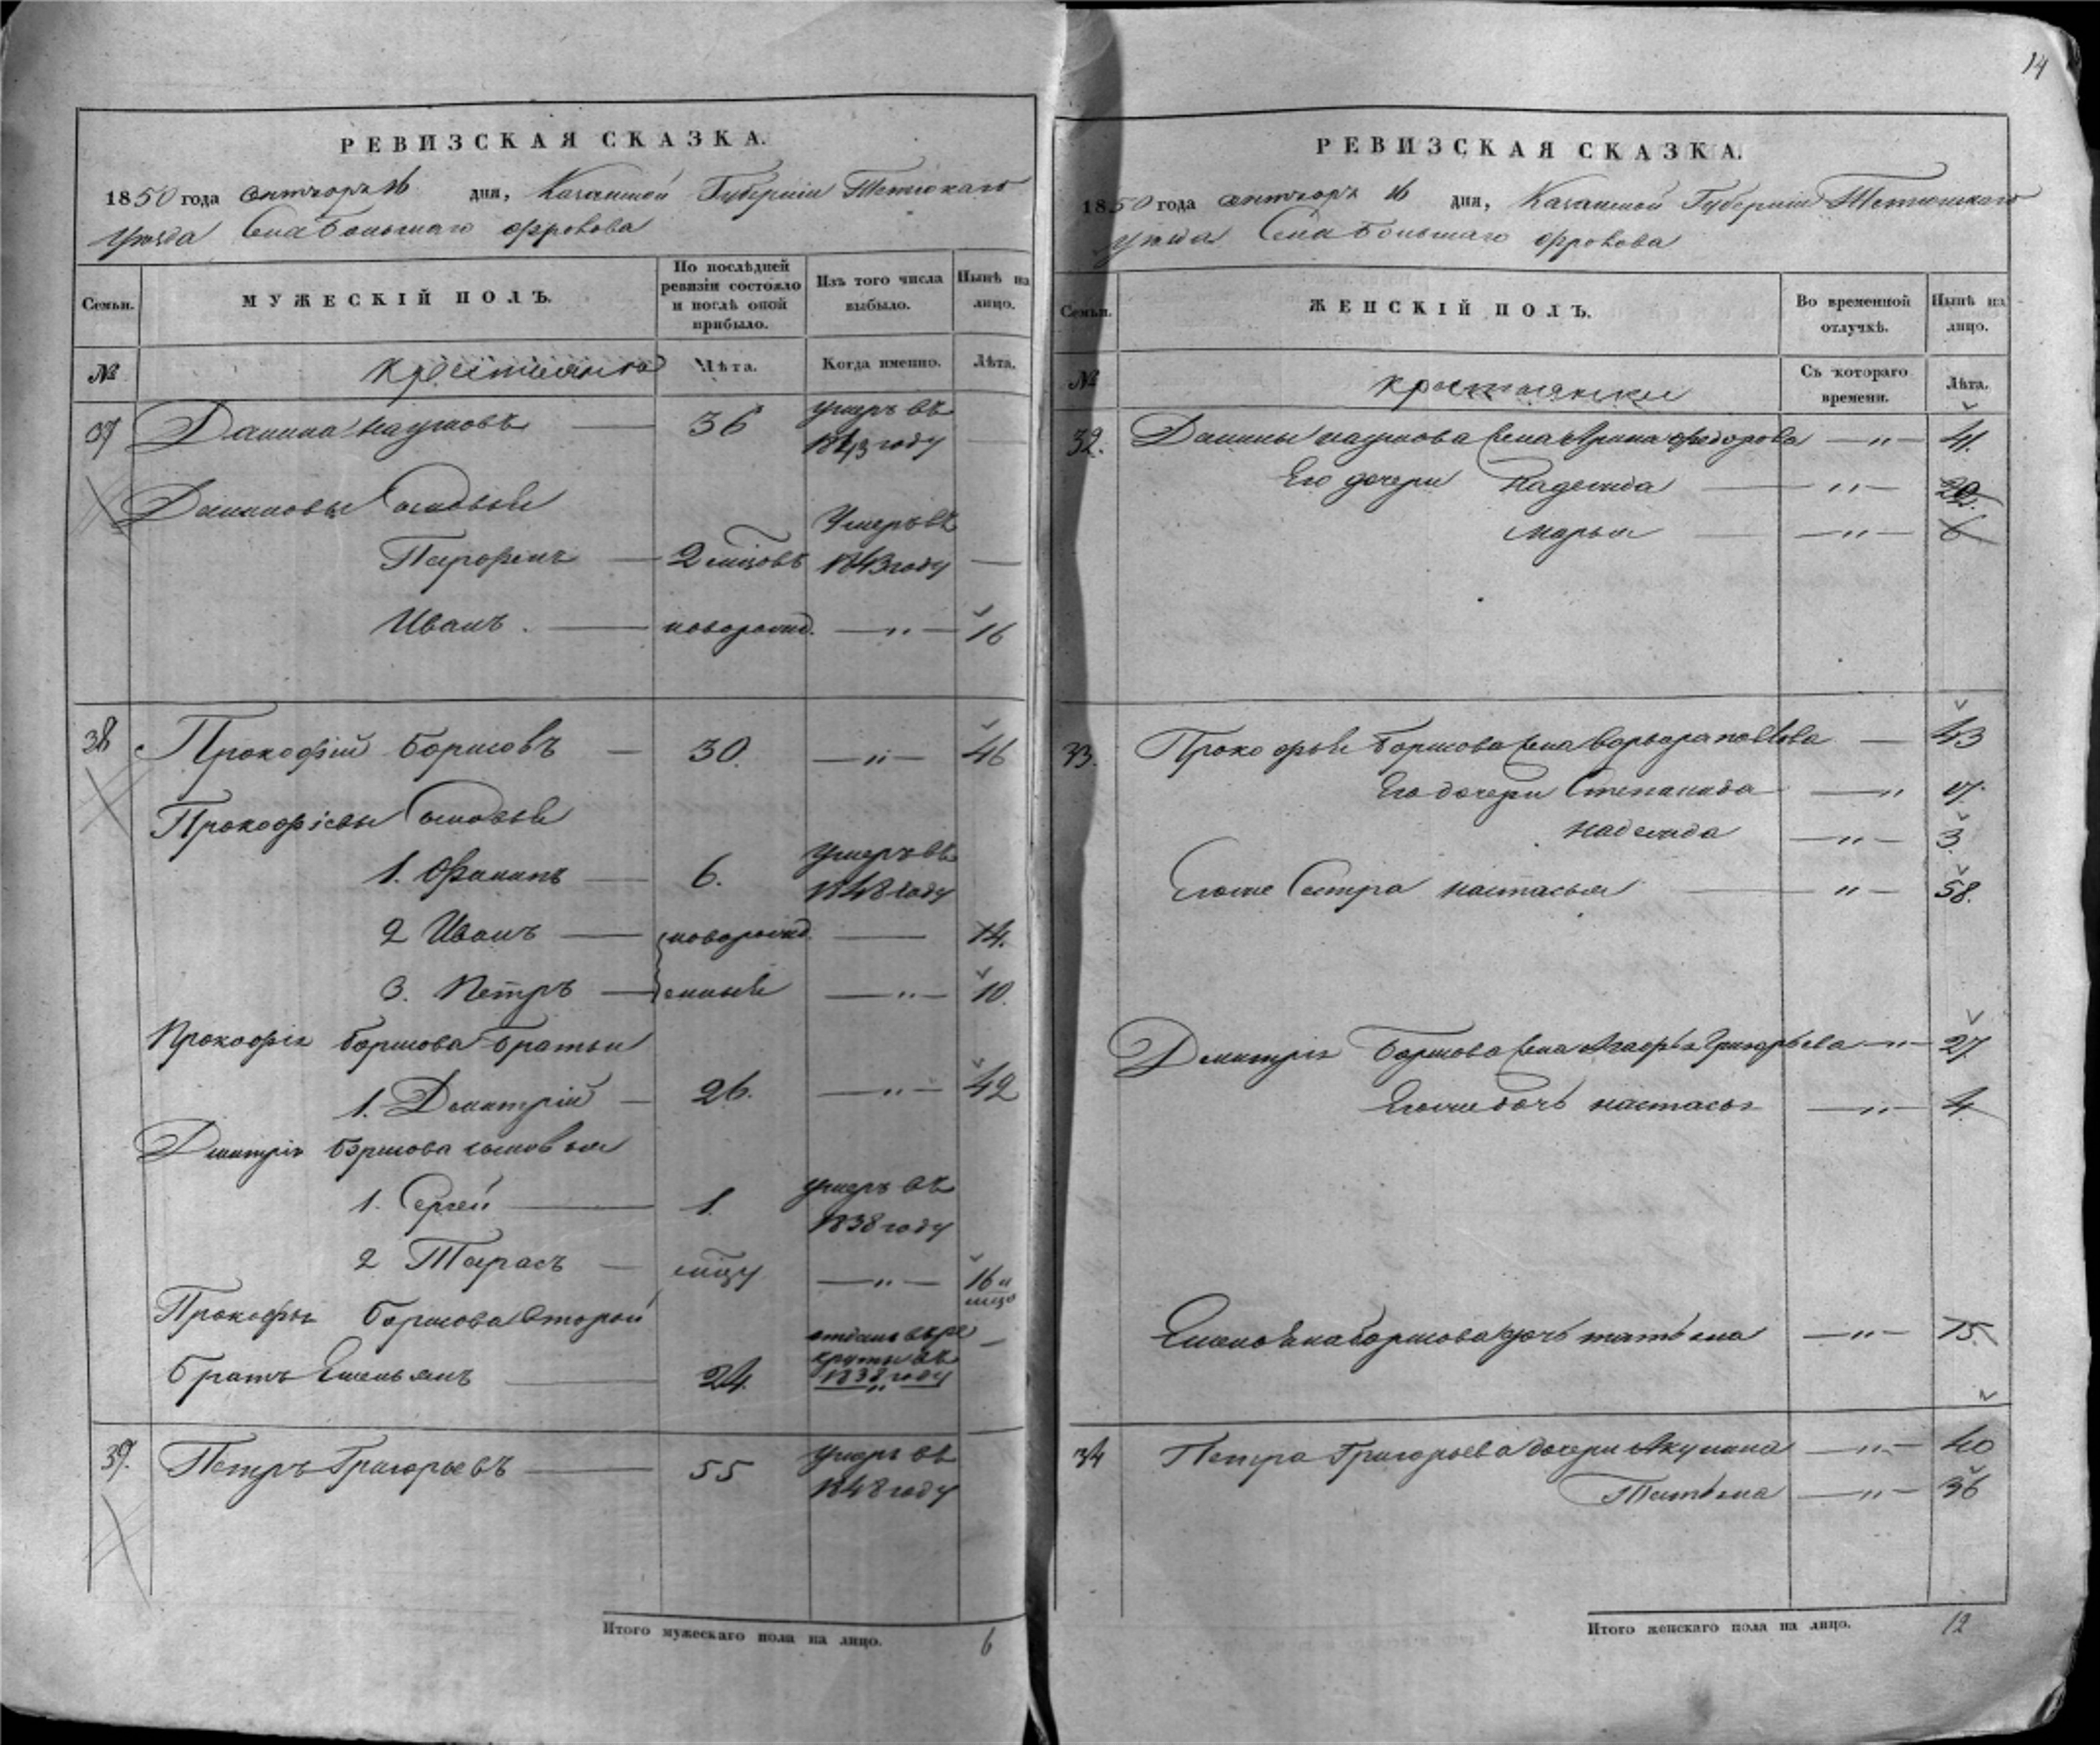 14
РЕВИЗСКАЯ СКАЗКА.
1850 года октября 16 дня, Казанской Губернии Тетюшскаго
уезда Села Большаго Фролова
Семьи.
МУЖЕСКІЙ ПОЛЪ.
По послѣдней ревизіи состояло и послѣ оной прибыло.
Изъ того числа выбыло.
Нынѣ на лицо.
№
крестьяне
Лѣта.
Когда именно.
Лѣта.
37 Данила Наумовъ — 36 умеръ въ 1843 году —
Даниловы Сыновья
Парфенъ — 2 мѣсяцовъ Умеръ въ 1843 году —
Иванъ. — новорожд. — " — 16
38 Прокофій Борисовъ — 30. — " — 46
Прокофіевы Сыновья
1. Филипъ — 6. Умеръ въ 1848 году
2 Иванъ — новорожд — 14.
3. Петръ — енныя — " — 10.
Прокофія Борисова братья
1. Дмитрій — 26. — " — 42
Дмитрія Борисова сыновья
1. Сергей — 1. умеръ въ 1838 году
2 Тарасъ — — " — 16
Прокофья Борисова второй отданъ въ ре —
братъ Емельянъ — 24. круты въ 1838 году
39. Петръ Григорьевъ — 55 Умеръ въ 1848 году
Итого мужескаго пола на лицо. 6
РЕВИЗСКАЯ СКАЗКА.
1850 года октября 16 дня, Казанской Губернии Тетюшскаго
уезда Села Большаго Фролова
Семьи.
ЖЕНСКІЙ ПОЛЪ.
Во временной отлучкѣ.
Нынѣ на лицо.
№
крестьянки
Съ котораго времени.
Лѣта.
32. Данилы Наумова жена Арина Федорова — " — 41.
Его дочери Надежда — " — 20.
Марья — " — 6
33. Прокофья Борисова жена Варвара — 43
Его дочери Степанида — " 17.
Надежда — " — 3.
Егоже Сестра Настасья — " — 58.
Дмитрія Борисова жена Агафья Григорьева — " — 27
Егоже дочь Настасья — " — 4
Емельяна Борисова дочь Татьяна — " — 15.
34 Петра Григорьева дочери Акулина — " — 40
Татьяна — " — 36
Итого женскаго пола на лицо. 12